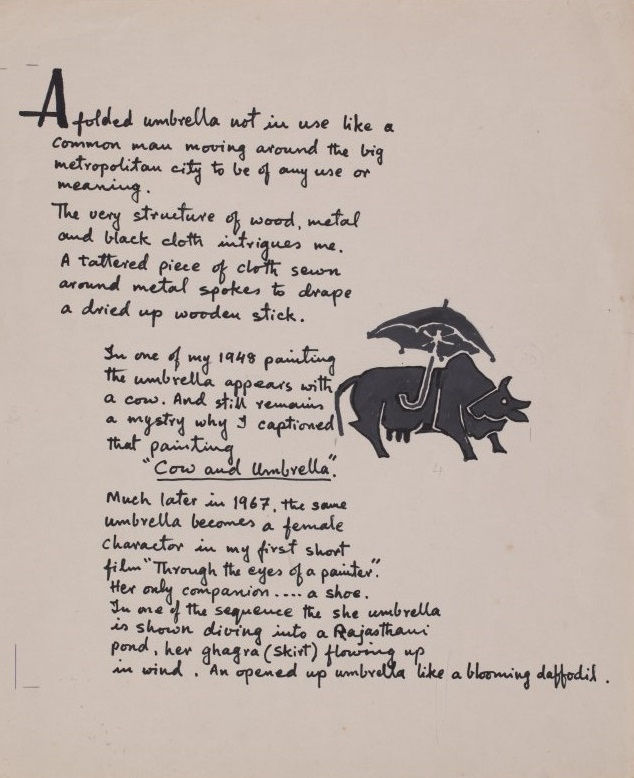 A folded umbrella not in use like a
common man moving around the big
metropolitan city to be of any use or
meaning.
The very structure of wood, metal
and black cloth intrigues me.
A tattered piece of cloth sewn
around metal spokes to drape
a dried up wooden stick.
In one of my 1948 painting
the umbrella appears with
a cow. And still remains
a mystry why I captioned
that painting
"Cow and Umbrella".
Much later in 1967, the same
umbrella becomes a female
charactor in my first short
film "Through the eyes of a painter".
Her only companion .... a shoe.
In one of the sequence the she umbrella
is shown diving into a Rajasthani
pond, her ghagra (skirt) flowing up
in wind. An opened up umbrella like a blooming daffodil.